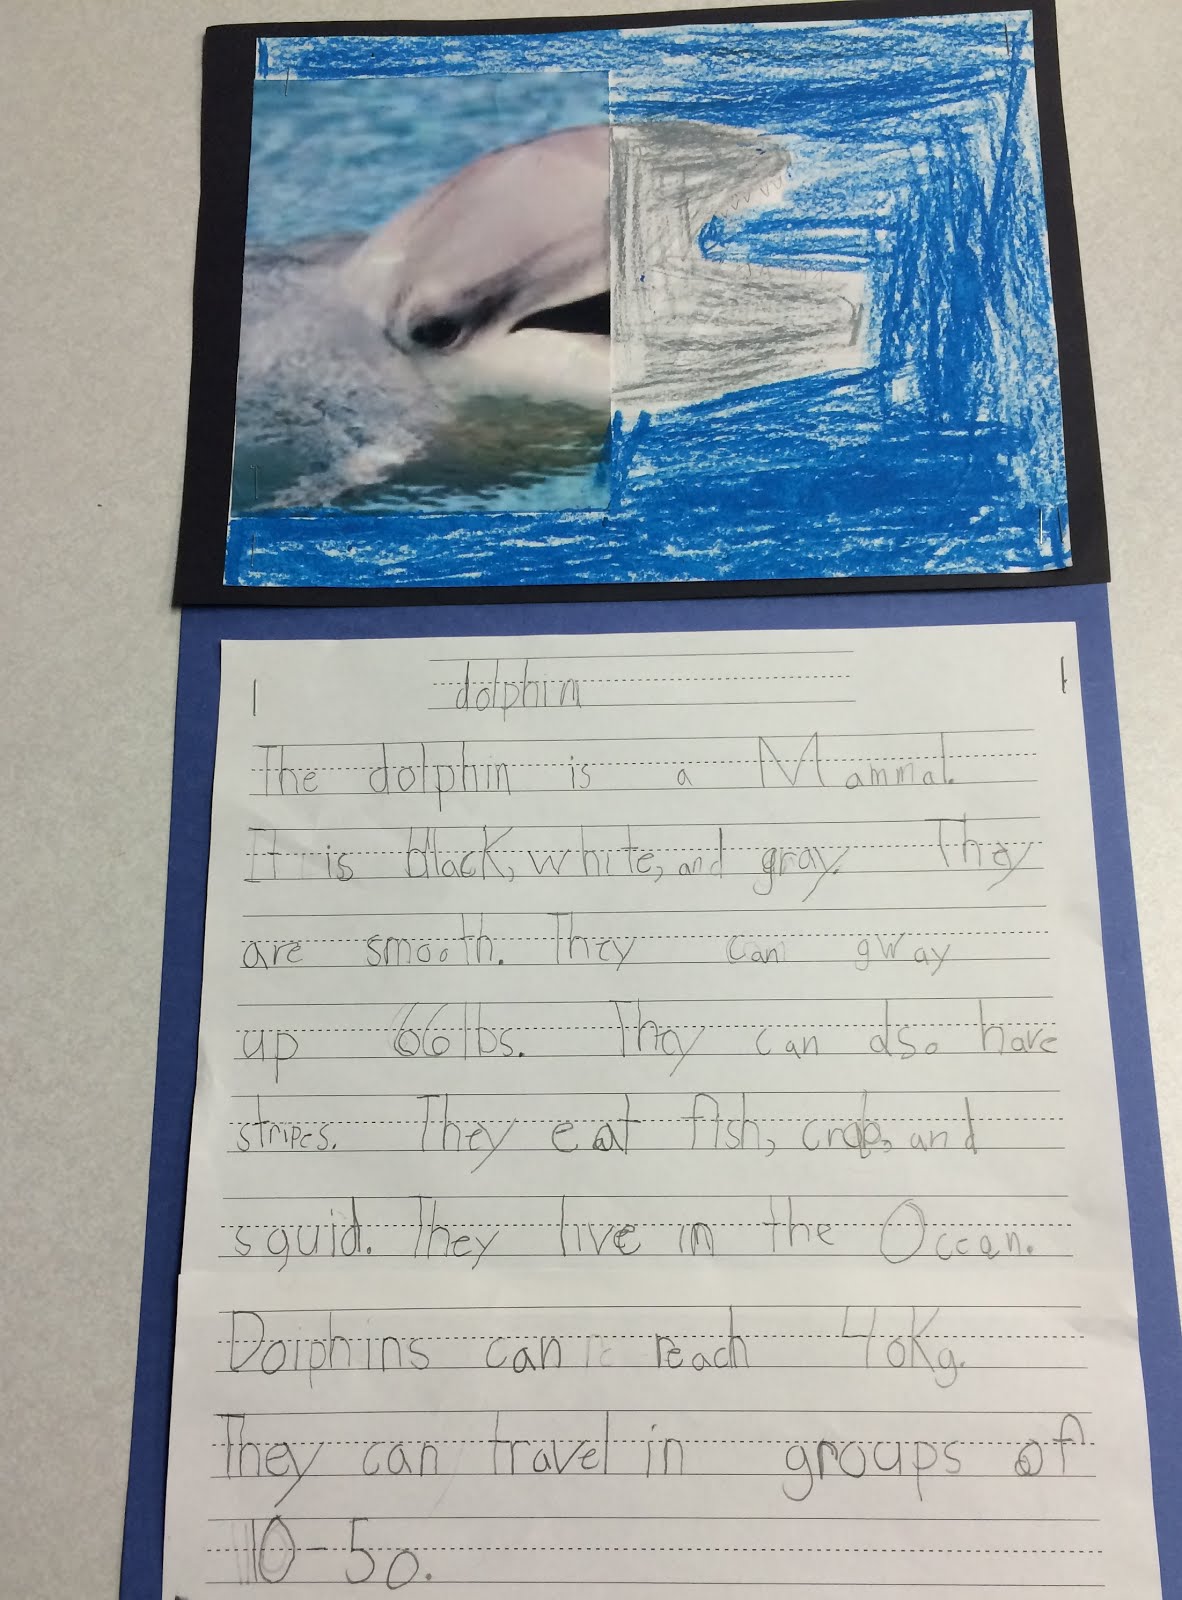 dolphin
The dolphin is a Mammal.
It is black, white, and gray. They
are smooth. They can gway
up 66lbs. They can also have
stripes. They eat fish, crab, and
squid. They live in the Occan.
Dolphins can reach 40Kg.
They can travel in groups of
10-50.